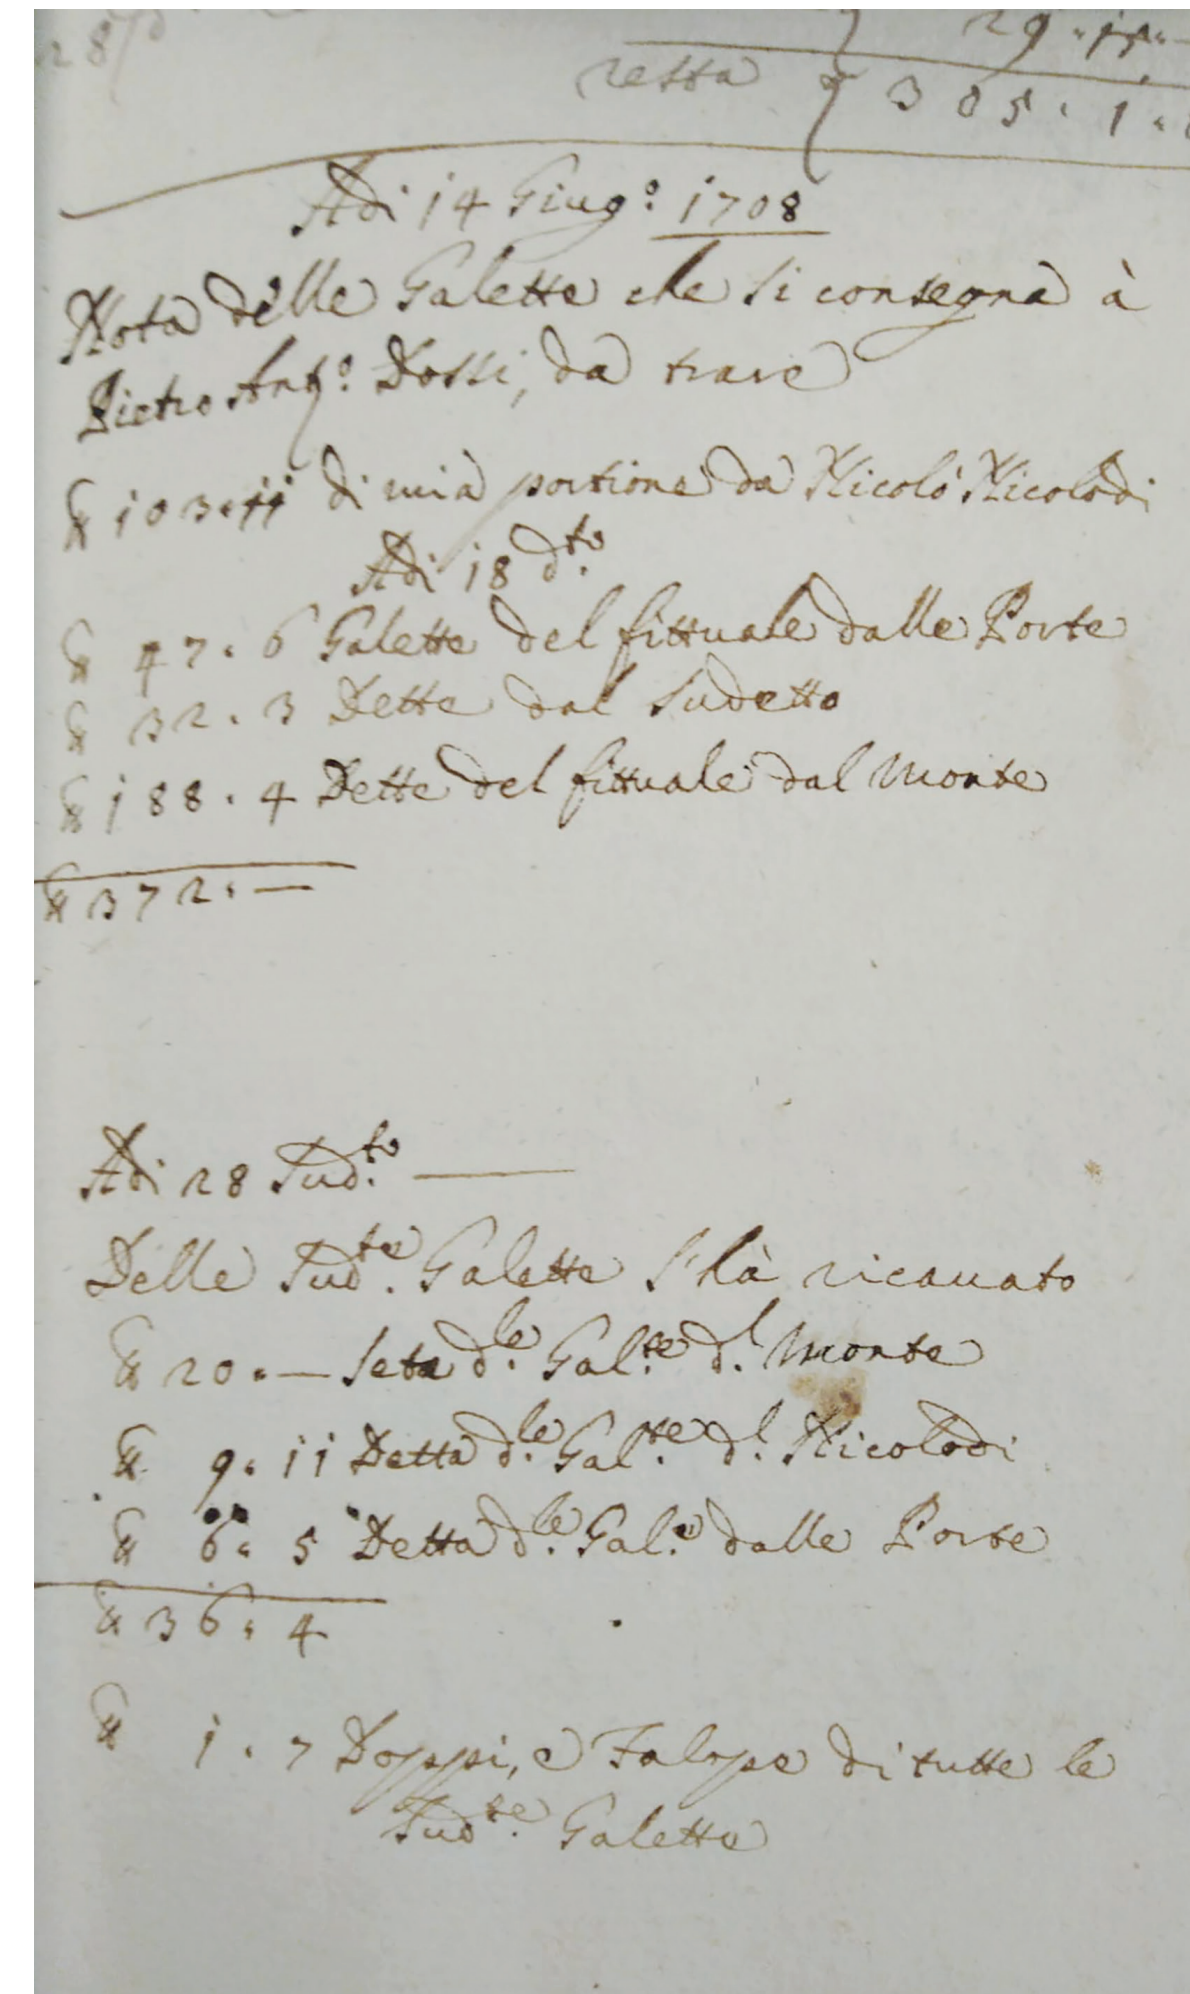 29 · 11 · —
resta 305 · 1 ·
Adi 14 Giug:º 1708
Nota delle Galette che si consegna à
Pietro Ant:º Dossi, da trare
℔ 103 · 11 di mia portione da Nicolò Nicolodi
Adi 18 d.to
℔ 47 · 6 Galette del fittuale dalle Porte
℔ 32 · 3 Dette dal sudetto
℔ 188 · 4 Dette del fittuale dal Monte
℔ 372 · —
Adi 28 Sud.to —
Delle Sud.te Galette s'hà ricauato
℔ 20 · — Seta d.le Gal.te d.l Monte
℔ 9 · 11 Detta d.le Gal.te d.l Nicolodi
℔ 6 · 5 Detta d.le Gal.e dalle Porte
℔ 36 · 4
℔ 1 · 7 Doppi, e Falope di tutte le
Sud.te Galette